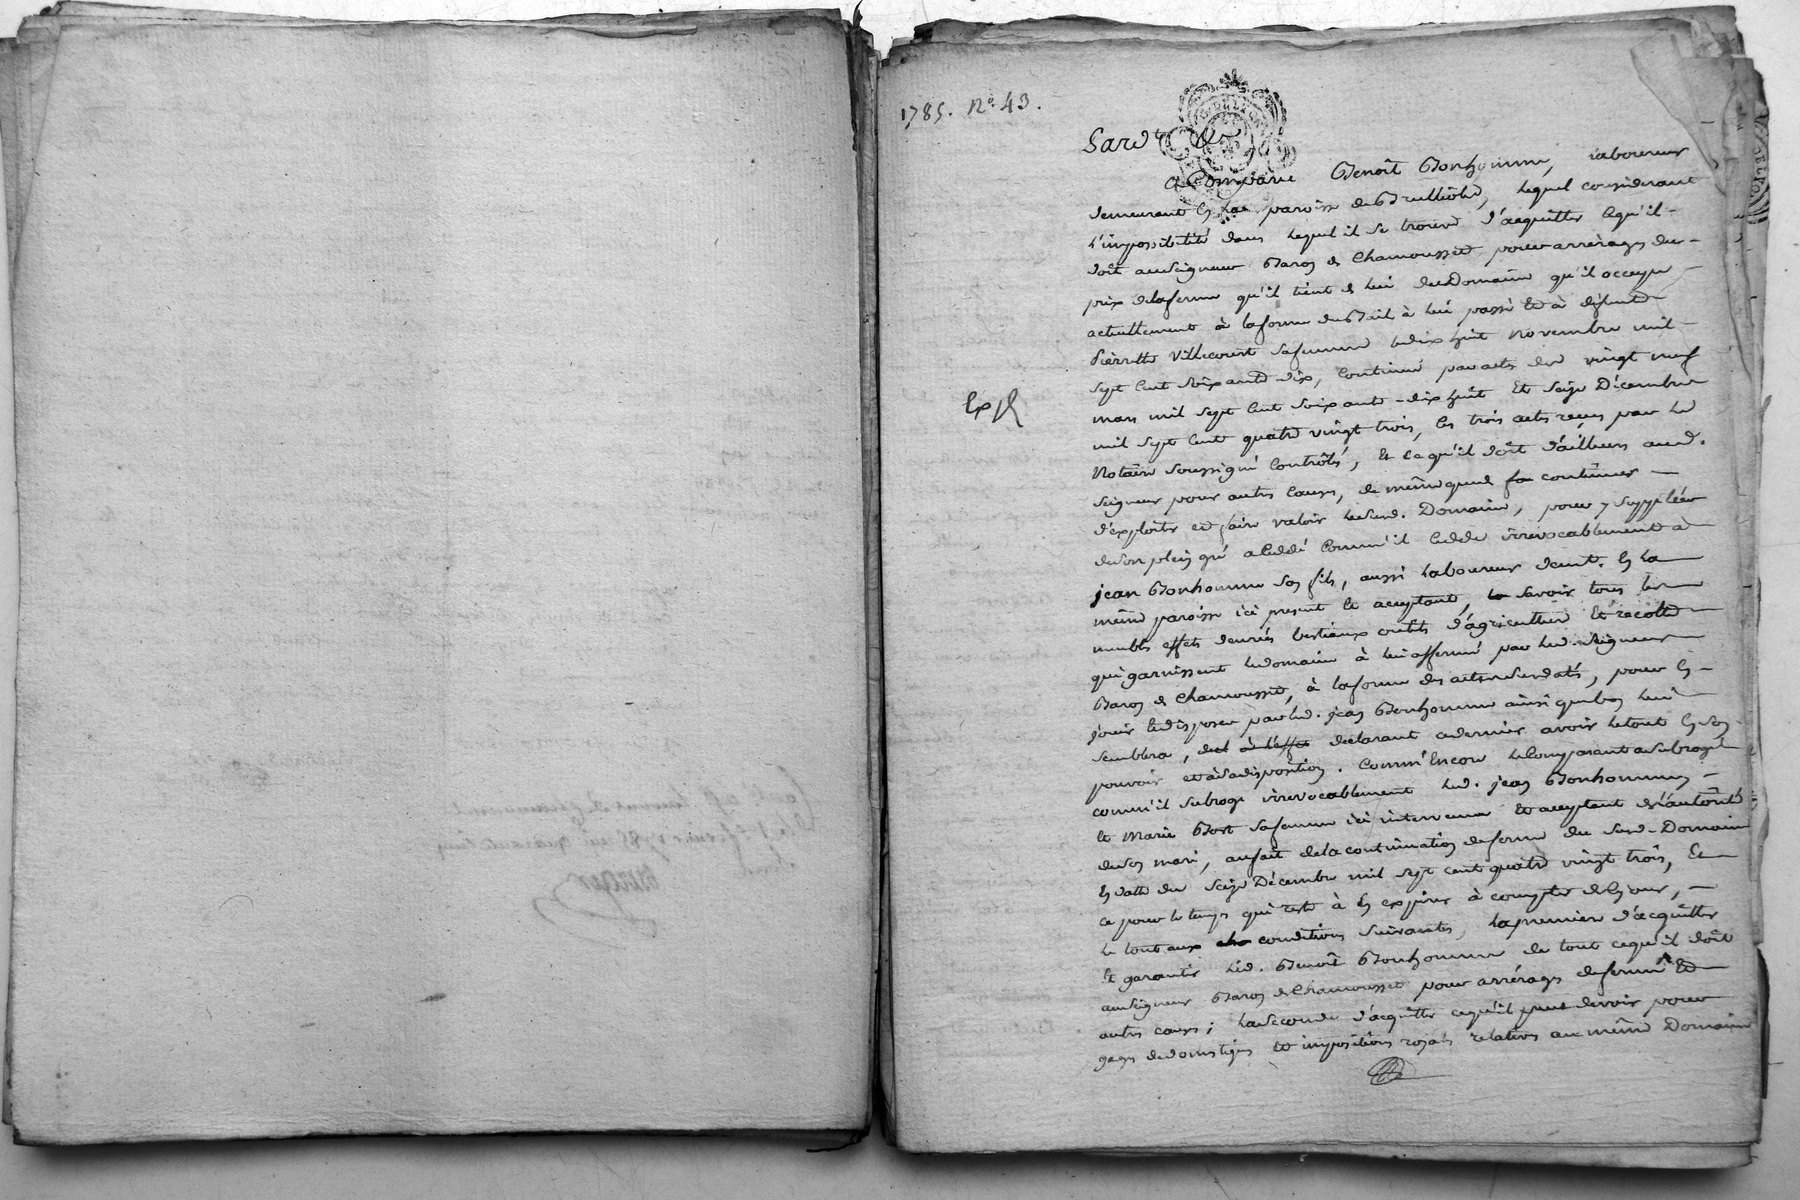 1785. N° 43.
Pard.t &c
a Comparu Benoit Bonhomme, laboureur
demeurant en la paroisse de Brullioles, lequel considerant
l'impossibilité dans lequel il se trouve d'acquitter ce qu'il
doit au Seigneur Baron de Chamousset pour arrérages du
prix de la ferme qu'il tient de lui du Domaine qu'il occupe
actuellement à la forme du Bail à lui passé et à défunte
Pierrette Villecourt sa femme le dix huit novembre mil
sept cent soixante dix, continué par actes des vingt neuf
mars mil sept cent soixante-dix huit et seize Décembre
mil sept cent quatre vingt trois, les trois actes reçus par le
Notaire soussigné contrôlés, et ce qu'il doit d'ailleurs aud.
Seigneur pour autres causes, de même que de continuer
Exp
d'exploiter et faire valoir led. Domaine, pour y suppléer
de son plein gré a cédé comm'il cedde irrevocablement à
jean Bonhomme son fils, aussi laboureur demt. en la
même paroisse ici present et acceptant, savoir tous les
meubles effets denrées bestiaux outils d'agriculture et recolte
qui garnissent le domaine à lui affermé par led. Seigneur
Baron de Chamousset, à la forme des actes susdatés, pour en
jouir et disposer par led. jean Bonhomme ainsi que bon lui
semblera, à l'effet declarant ce dernier avoir le tout en son
pouvoir et à sa disposition. Comm'encore le Comparant a subrogé
comm'il subroge irrevocablement led. jean Bonhomme
et Marie Bort sa femme ici intervenue et acceptant de l'autorité
de son mari, au fait de la continuation de ferme du susd. Domaine
en datte du seize Décembre mil sept cent quatre vingt trois, et
ce pour le temps qui reste à en expirer à compter de ce jour,
le tout aux conditions suivantes, la premiere d'acquitter
et garantir led. Benoit Bonhomme de tout ce qu'il doit
au Seigneur Baron de Chamousset pour arrérages de ferme et
autres causes; la Seconde d'acquitter ce qu'il peut devoir pour
gages de domestiques et impositions royales relatives au même Domaine